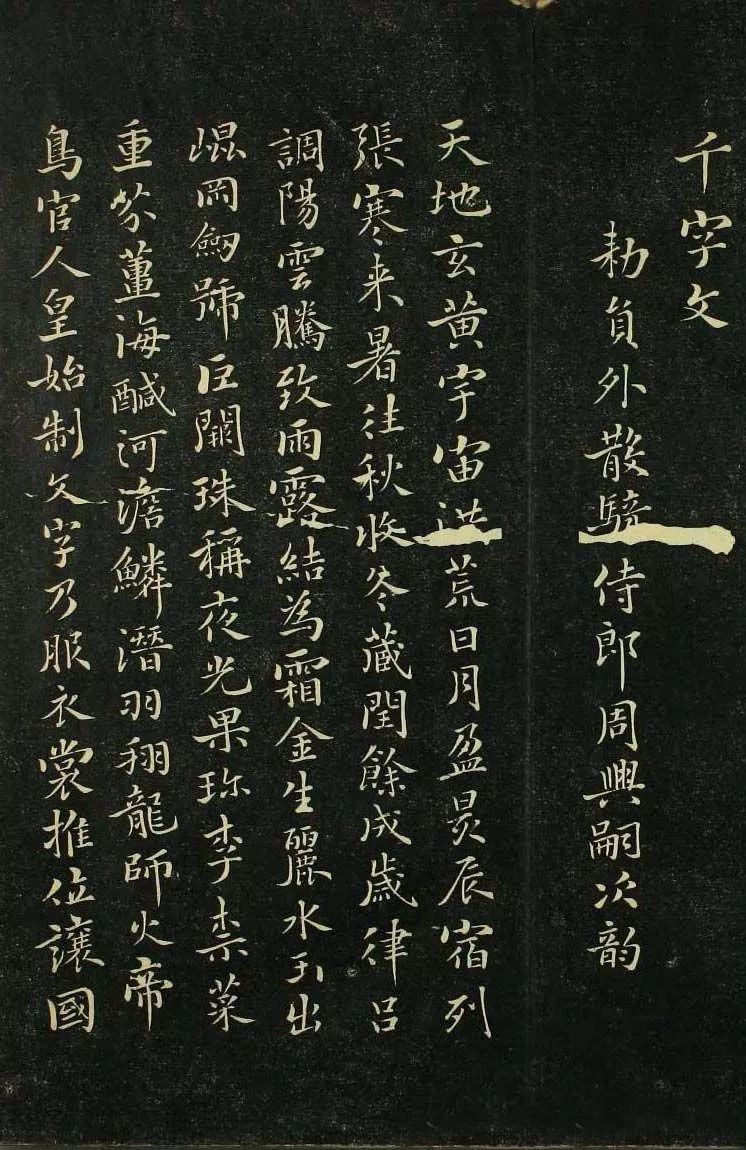 千字文
勑員外散騎侍郎周興嗣次韵
天地玄黄宇宙洪荒日月盈昃辰宿列
張寒来暑往秋收冬藏閏餘成歲律呂
調陽雲騰致雨露結為霜金生麗水玉出
崐岡劒號巨闕珠稱夜光果珎李柰菜
重芥薑海醎河澹鱗潛羽翔龍師火帝
鳥官人皇始制文字乃服衣裳推位讓國